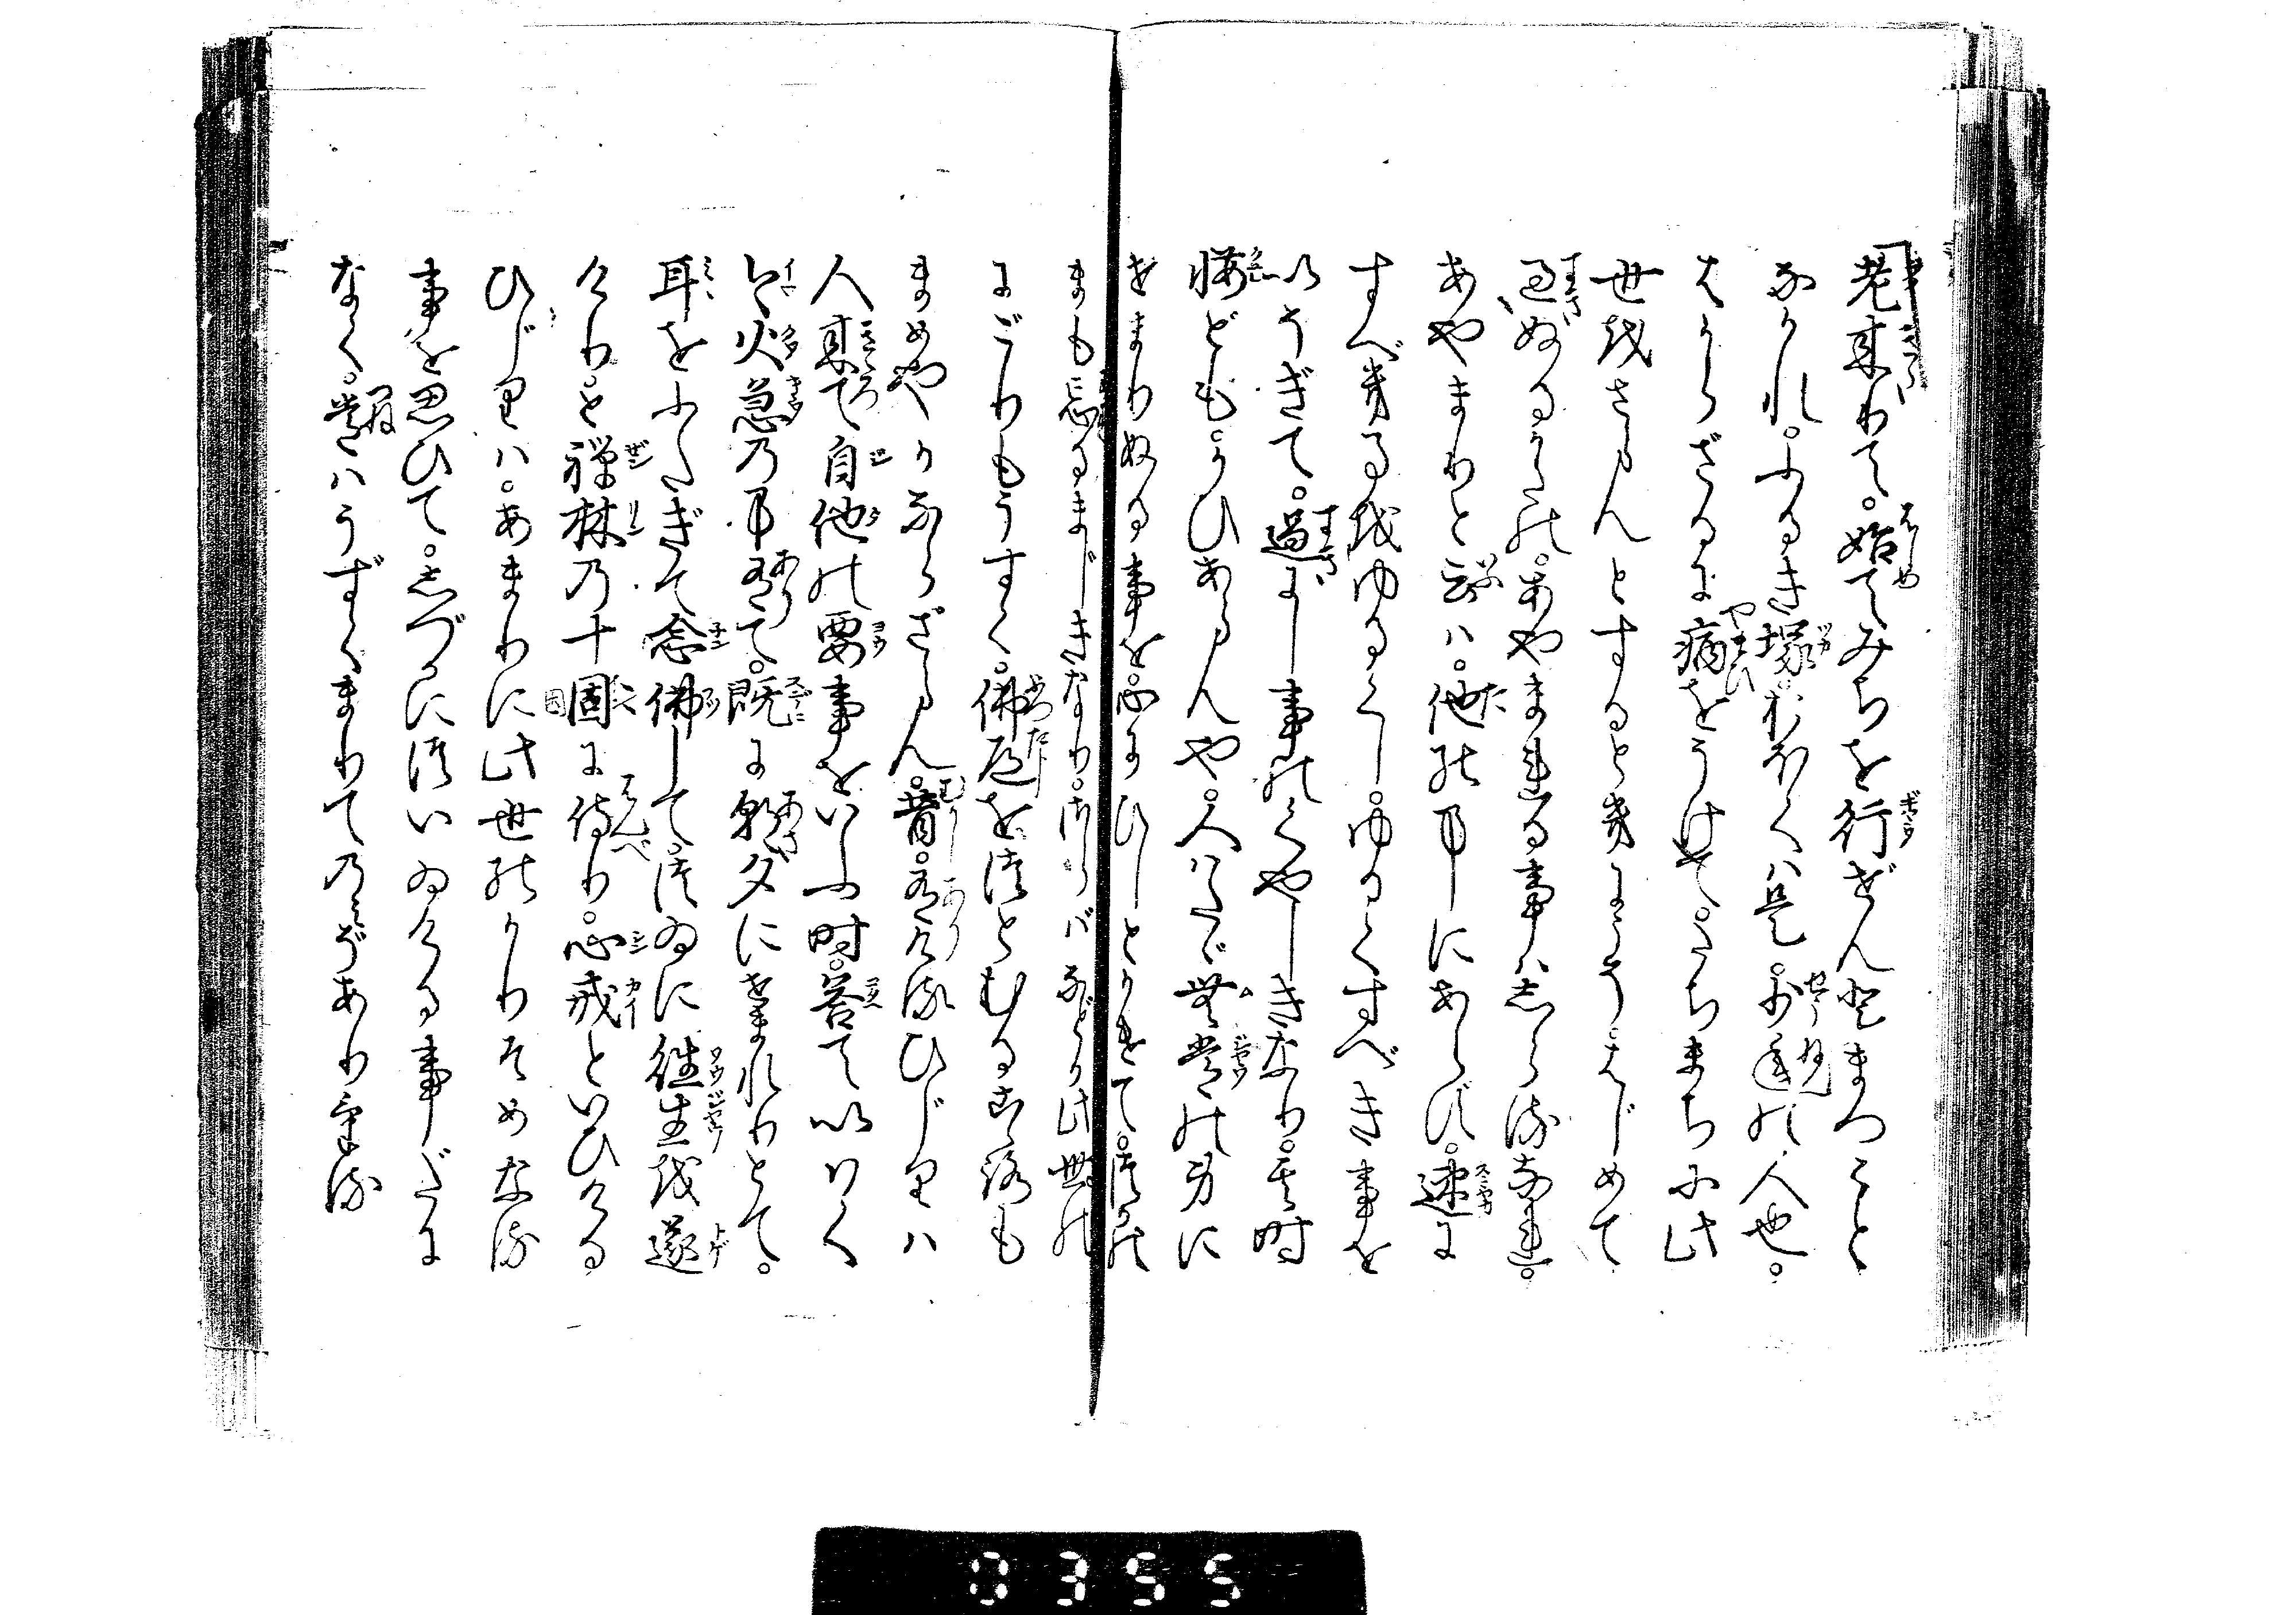 老来りて。始てみちを行ぜんとまつこと
なかれ。ふるき塚。おほくは是。少年の人也。
はからざるに病をうけて。たちまちに此
世をさらんとするときにこそ。はじめて
過ぬるかたの。あやまれる事はしらるなれ。
あやまりと云は。他の事にあらず。速に
すべき事をゆるくし。ゆるくすべき事を
いそぎて。過にし事のくやしきなり。其時
悔ども。かひあらんや。人はたゞ無常の身に
せまりぬる事を。心にひしとかけて。つかの
まも忘るまじきなり。さらばなどか此世の
にごりもうすく。佛道をつとむる心も
まめやかならざらん。昔。有ける。ひじりは
人来て自他の要事をいふ時。答ていはく
今火急の事有て。既に朝夕にせまれりとて。
耳をふたぎて念佛して。つゐに往生を遂
けりと禅林の十因に侍り。心戒といひける
ひじりは。あまりに此世のかりそめなる
事を思ひて。しづかについゐける事だに
なく。常はうずくまりてのみぞありける
0355